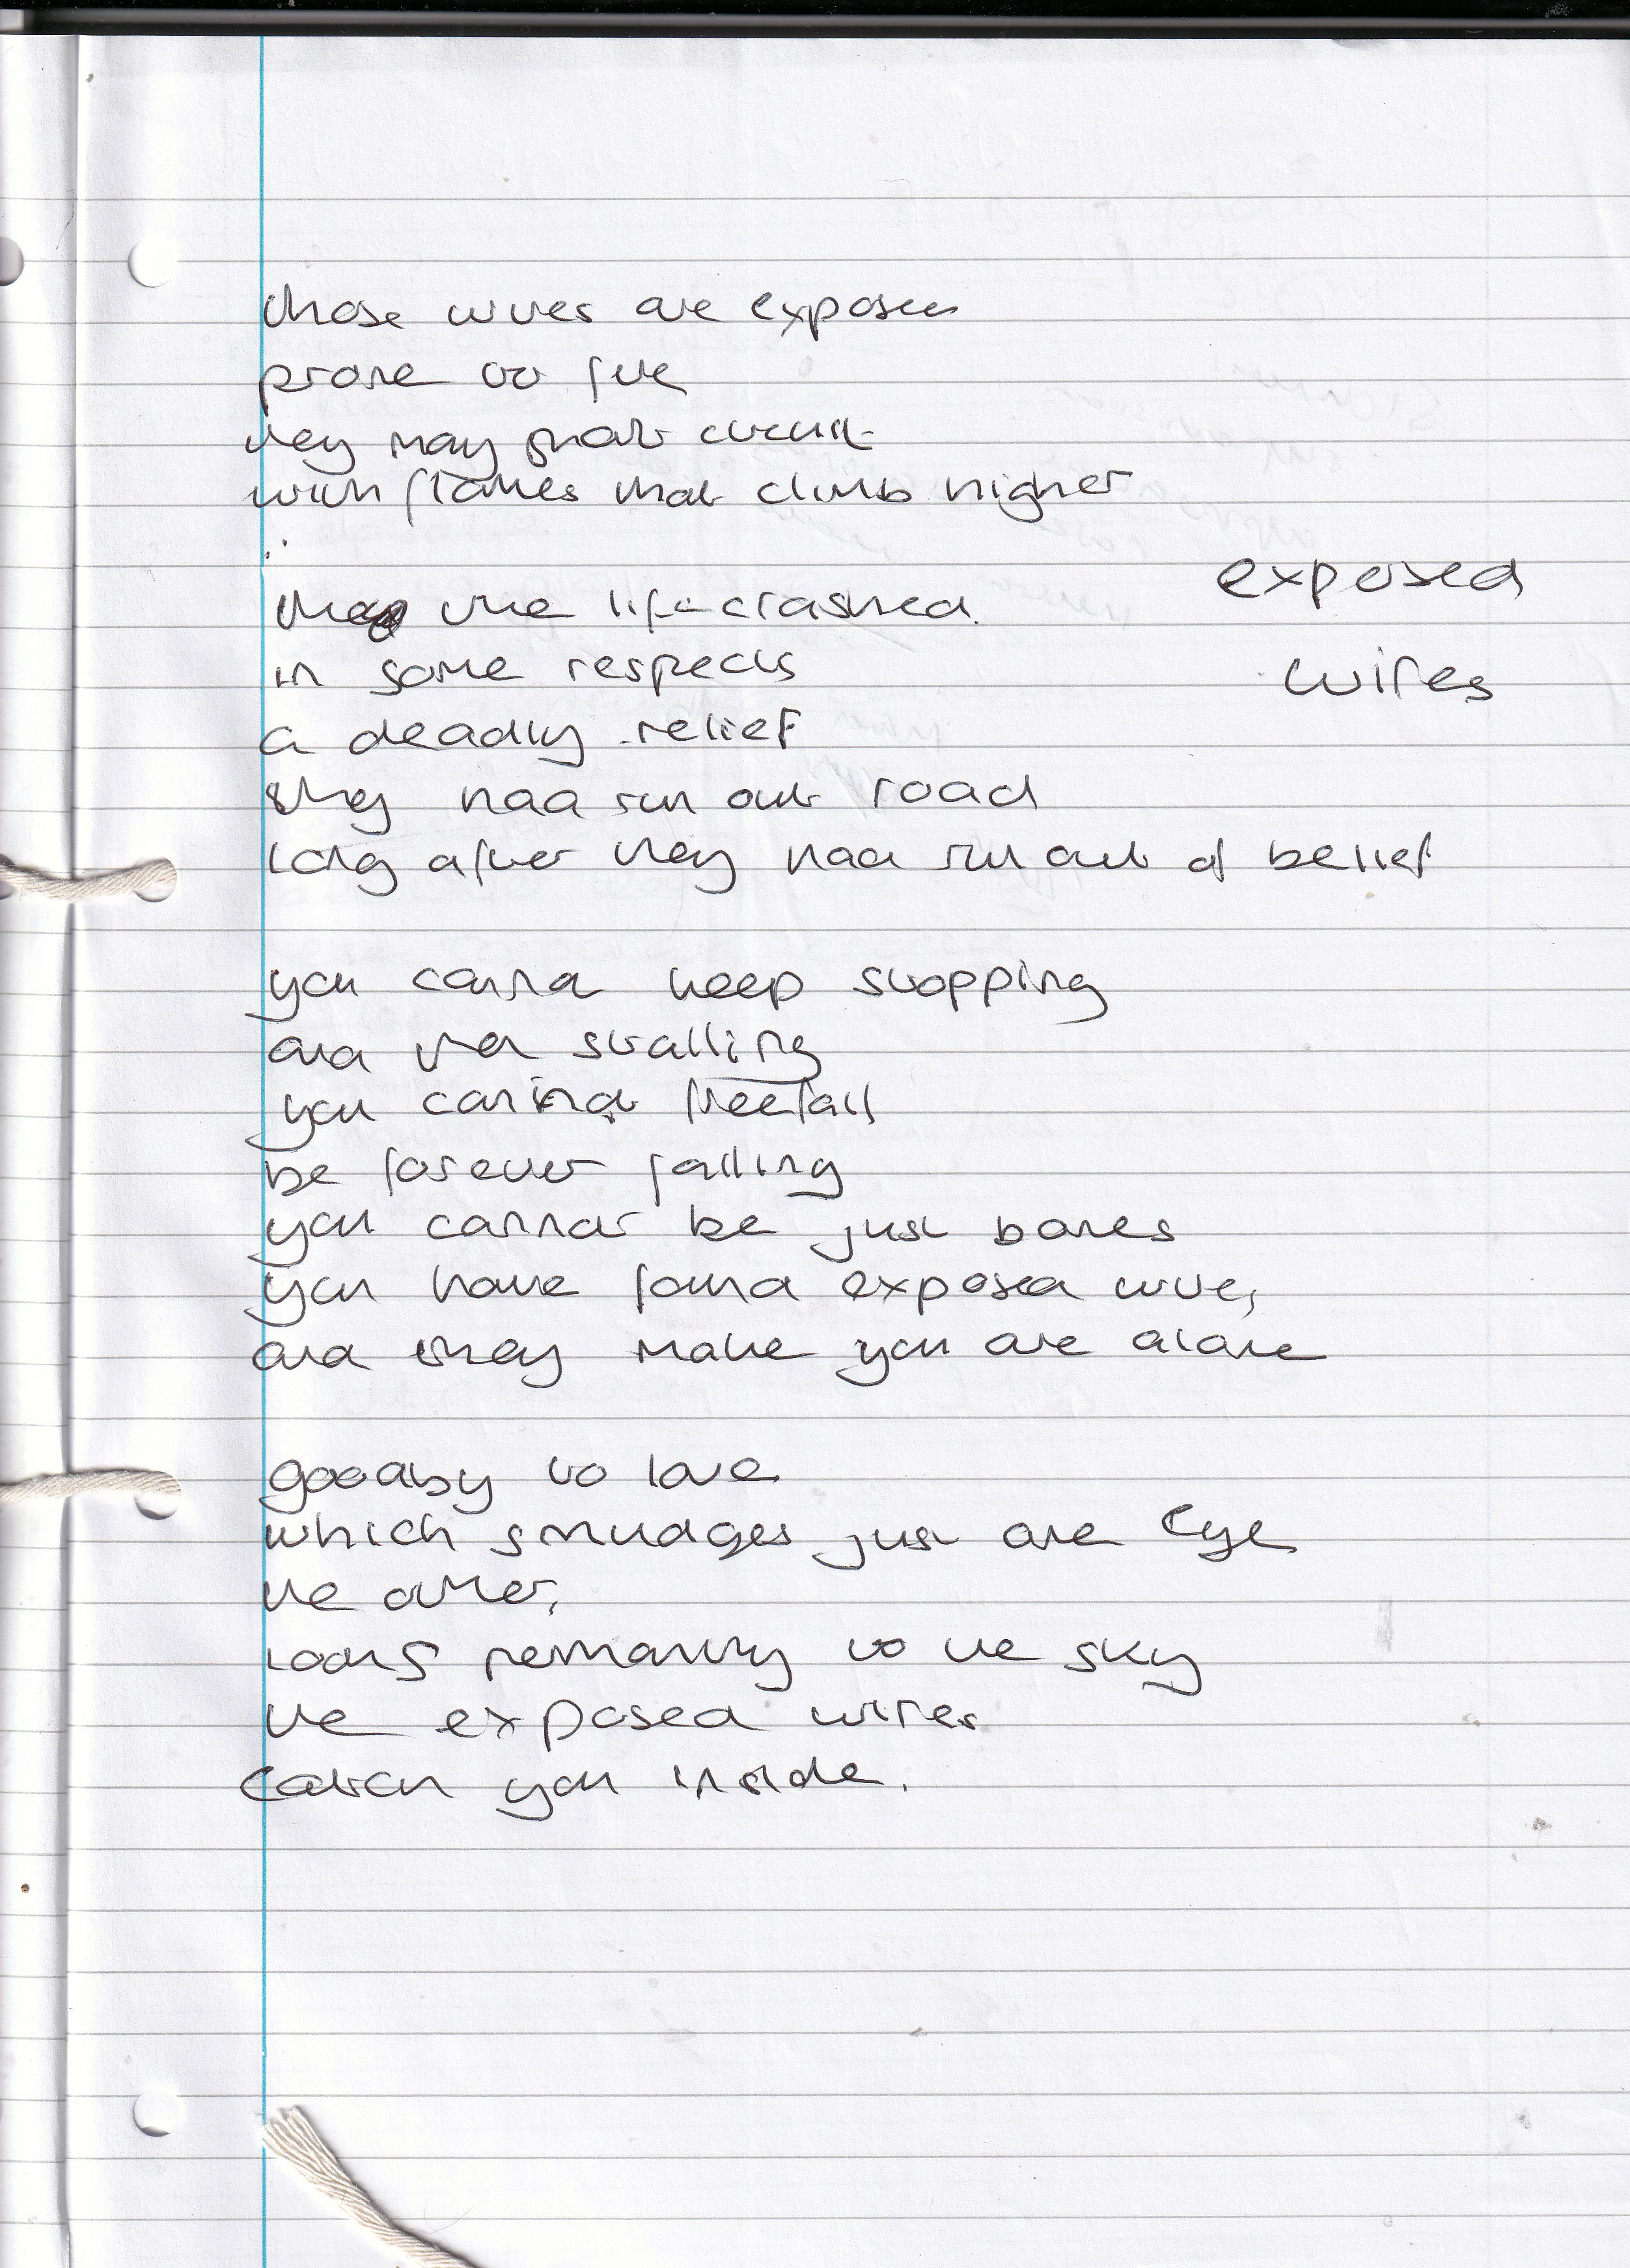 those wires are exposed
prone to fire
they may short circuit
with flames that climb higher
the life crashed
exposed
in some respects
wires
a deadly relief
they had run out road
long after they had run out of belief
you cannot keep stopping
and then stalling
you cannot freefall
be forever falling
you cannot be just bones
you have found exposed wire,
and they make you are alone
goodby to love
which smudges just one eye
the other,
looks to the sky
the exposed wires
catch you inside.